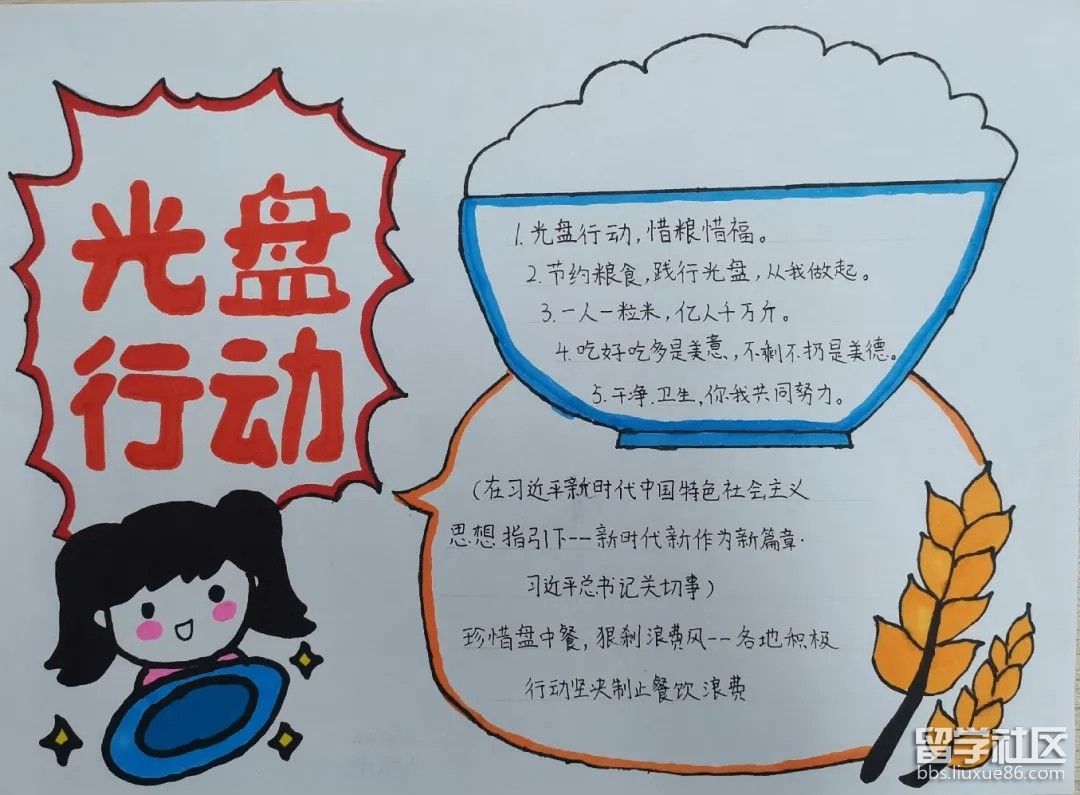 光盘
行动
1.光盘行动,惜粮惜福。
2.节约粮食,践行光盘,从我做起。
3.一人一粒米,亿人千万斤。
4.吃好吃多是美意,不剩不扔是美德。
5.干净.卫生,你我共同努力。
(在习近平新时代中国特色社会主义
思想指引下--新时代新作为新篇章.
习近平总书记关切事)
珍惜盘中餐,狠刹浪费风--各地积极
行动坚决制止餐饮浪费
留学社区
bbs.liuxue86.com